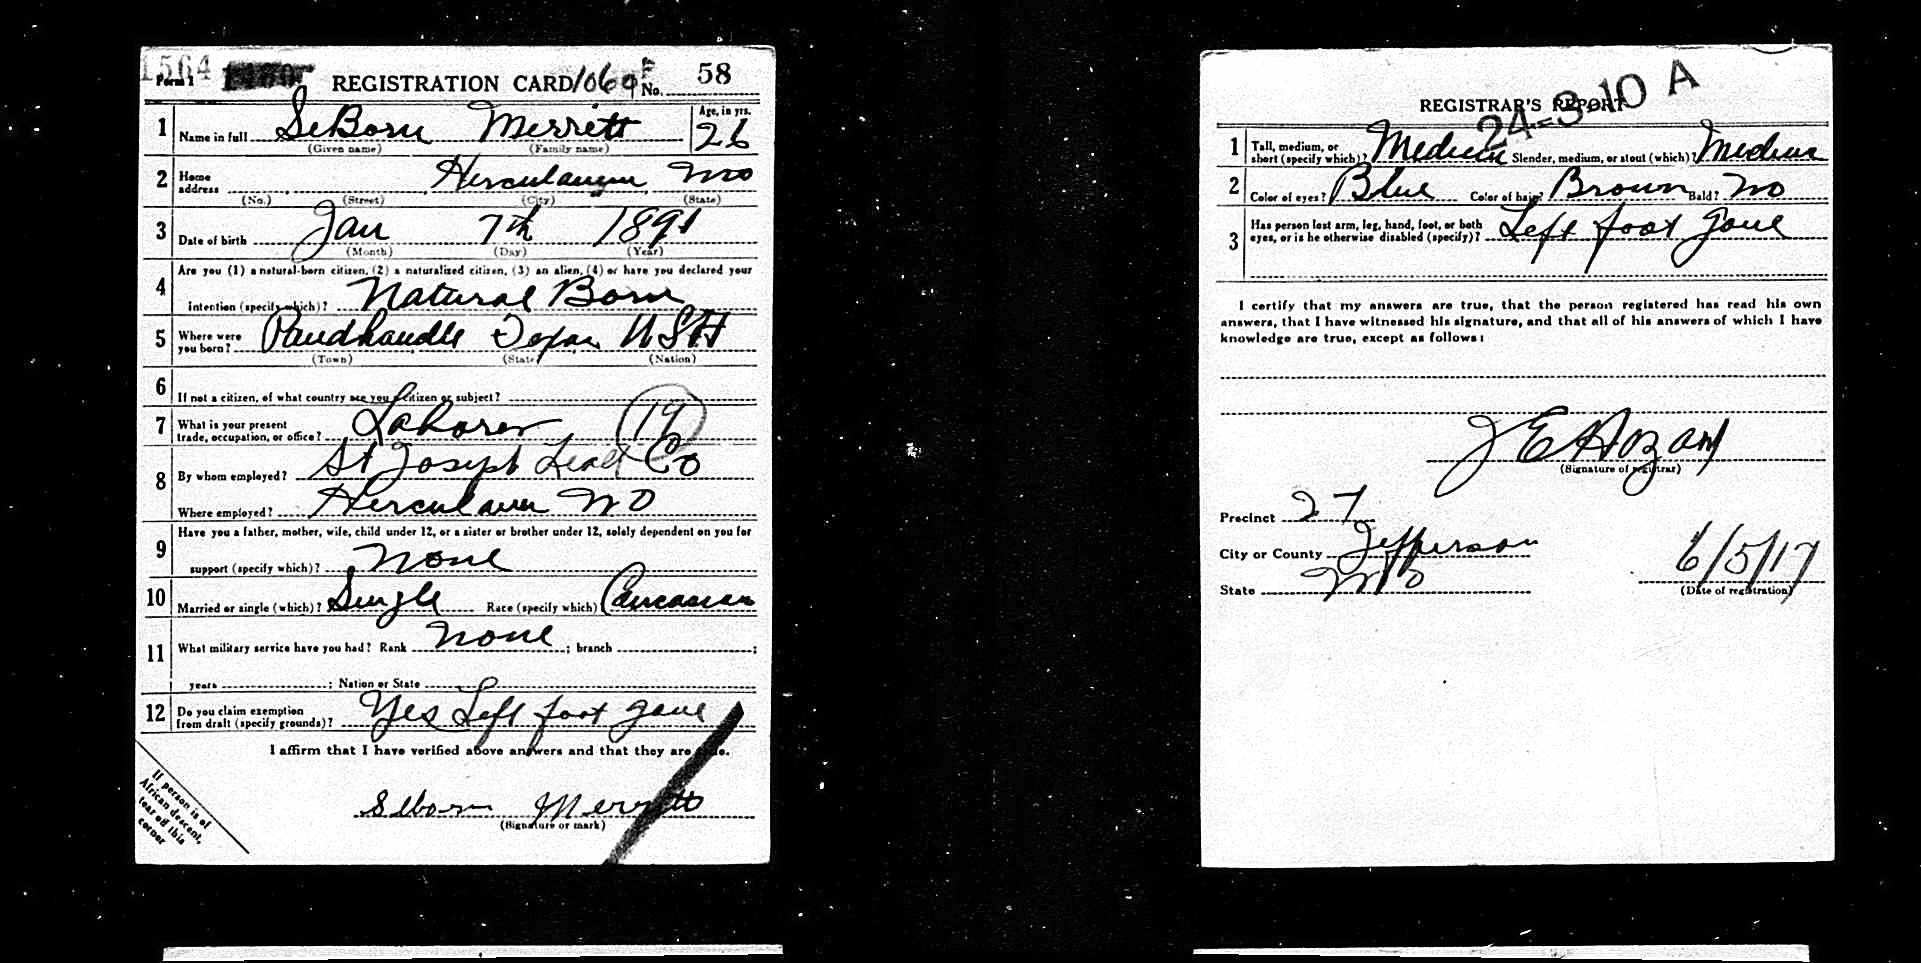 1564
Form 1 REGISTRATION CARD 1060 No. 58
1 Name in full SeBorn Merrett Age, in yrs. 26
(Given name) (Family name)
2 Home address Herculaneum Mo
(No.) (Street) (City) (State)
3 Date of birth Jan 7th 1891
(Month) (Day) (Year)
4 Are you (1) a natural-born citizen, (2) a naturalized citizen, (3) an alien, (4) or have you declared your
intention (specify which)? Natural Born
5 Where were you born? Pandhandle Texas USA
(Town) (State) (Nation)
6 If not a citizen, of what country are you a citizen or subject?
7 What is your present trade, occupation, or office? Laborer 19
8 By whom employed? St Joseph Lead Co
Where employed? Herculaneum MO
9 Have you a father, mother, wife, child under 12, or a sister or brother under 12, solely dependent on you for
support (specify which)? None
10 Married or single (which)? Single Race (specify which) Caucasian
11 What military service have you had? Rank None ; branch ;
years ; Nation or State
12 Do you claim exemption from draft (specify grounds)? Yes Left foot gone
I affirm that I have verified above answers and that they are true.
Seborn Merrett
(Signature or mark)
If person is of
African descent,
tear off this
corner
24-3-10 A
REGISTRAR'S REPORT
1 Tall, medium, or short (specify which)? Medium Slender, medium, or stout (which)? Medium
2 Color of eyes? Blue Color of hair? Brown Bald? No
3 Has person lost arm, leg, hand, foot, or both
eyes, or is he otherwise disabled (specify)? Left foot gone
I certify that my answers are true, that the person registered has read his own
answers, that I have witnessed his signature, and that all of his answers of which I have
knowledge are true, except as follows:
J E Hozan
(Signature of registrar)
Precinct 27
City or County Jefferson
State Mo
6/5/17
(Date of registration)